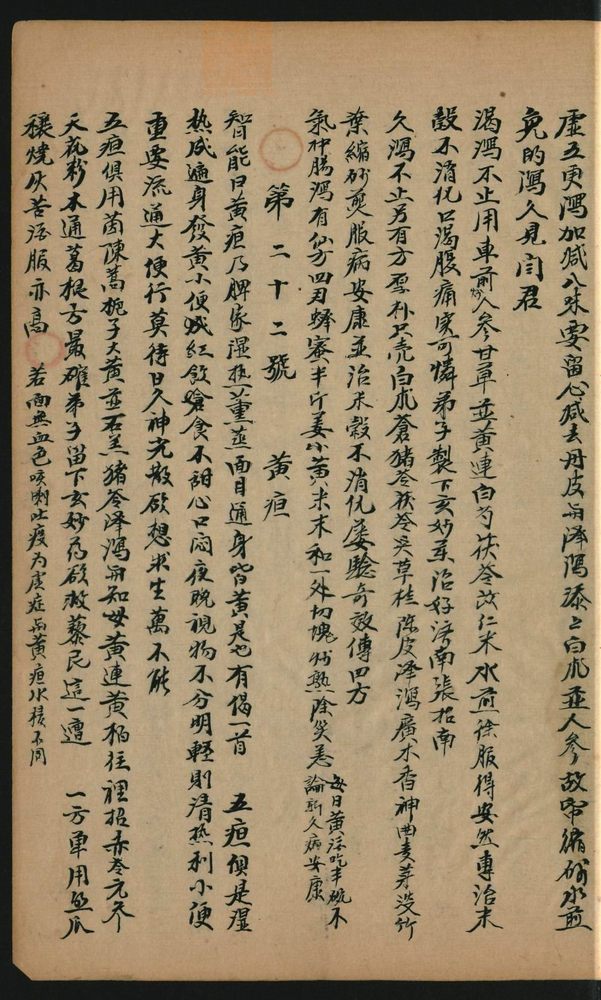 虛五更瀉加減八味要留心減去丹皮與澤瀉添上白朮並人參故帋縮砂水煎
免的瀉久見閻君
渴瀉不止用車前人參甘草並黃連白芍茯苓苡仁米水煎徐服得安然專治未
穀不消化口渴腹痛實可憐弟子製下玄妙藥治好濟南張招南
久瀉不止另有方朴只壳白朮蒼猪苓茯苓吳草桂陳皮澤瀉廣木香神曲麦芽没竹
葉縮砂煎服病安康並治未穀不消化屡驗奇效傳四方
氣神腸瀉有仙方四刃蜂蜜半斤姜小黃米末和一外切塊熟除災恙每日黃活吃半碗不論新久病安康
第二十二號 黃疸
智能曰黃疸乃脾家濕热薰蒸面目通身皆黃是也有偈一首 五疸俱是濕
热成遍身發黃小便紅飲食不甜心口悶夜晚視物不分明輕則清热利小便
重要流通大便行莫待日久神光散欲想求生萬不能
五疸俱用茵陳蒿梔子大黃並石羔猪苓澤瀉與知母黃連黃柏往裡招赤苓元參
天花粉木通葛根方最確弟子留下玄妙药欲救藜民這一遭 一方單用絲瓜
穰燒灰苦酒服亦高 若面無血色咳嗽吐痰为虛症與黃疸水積不同